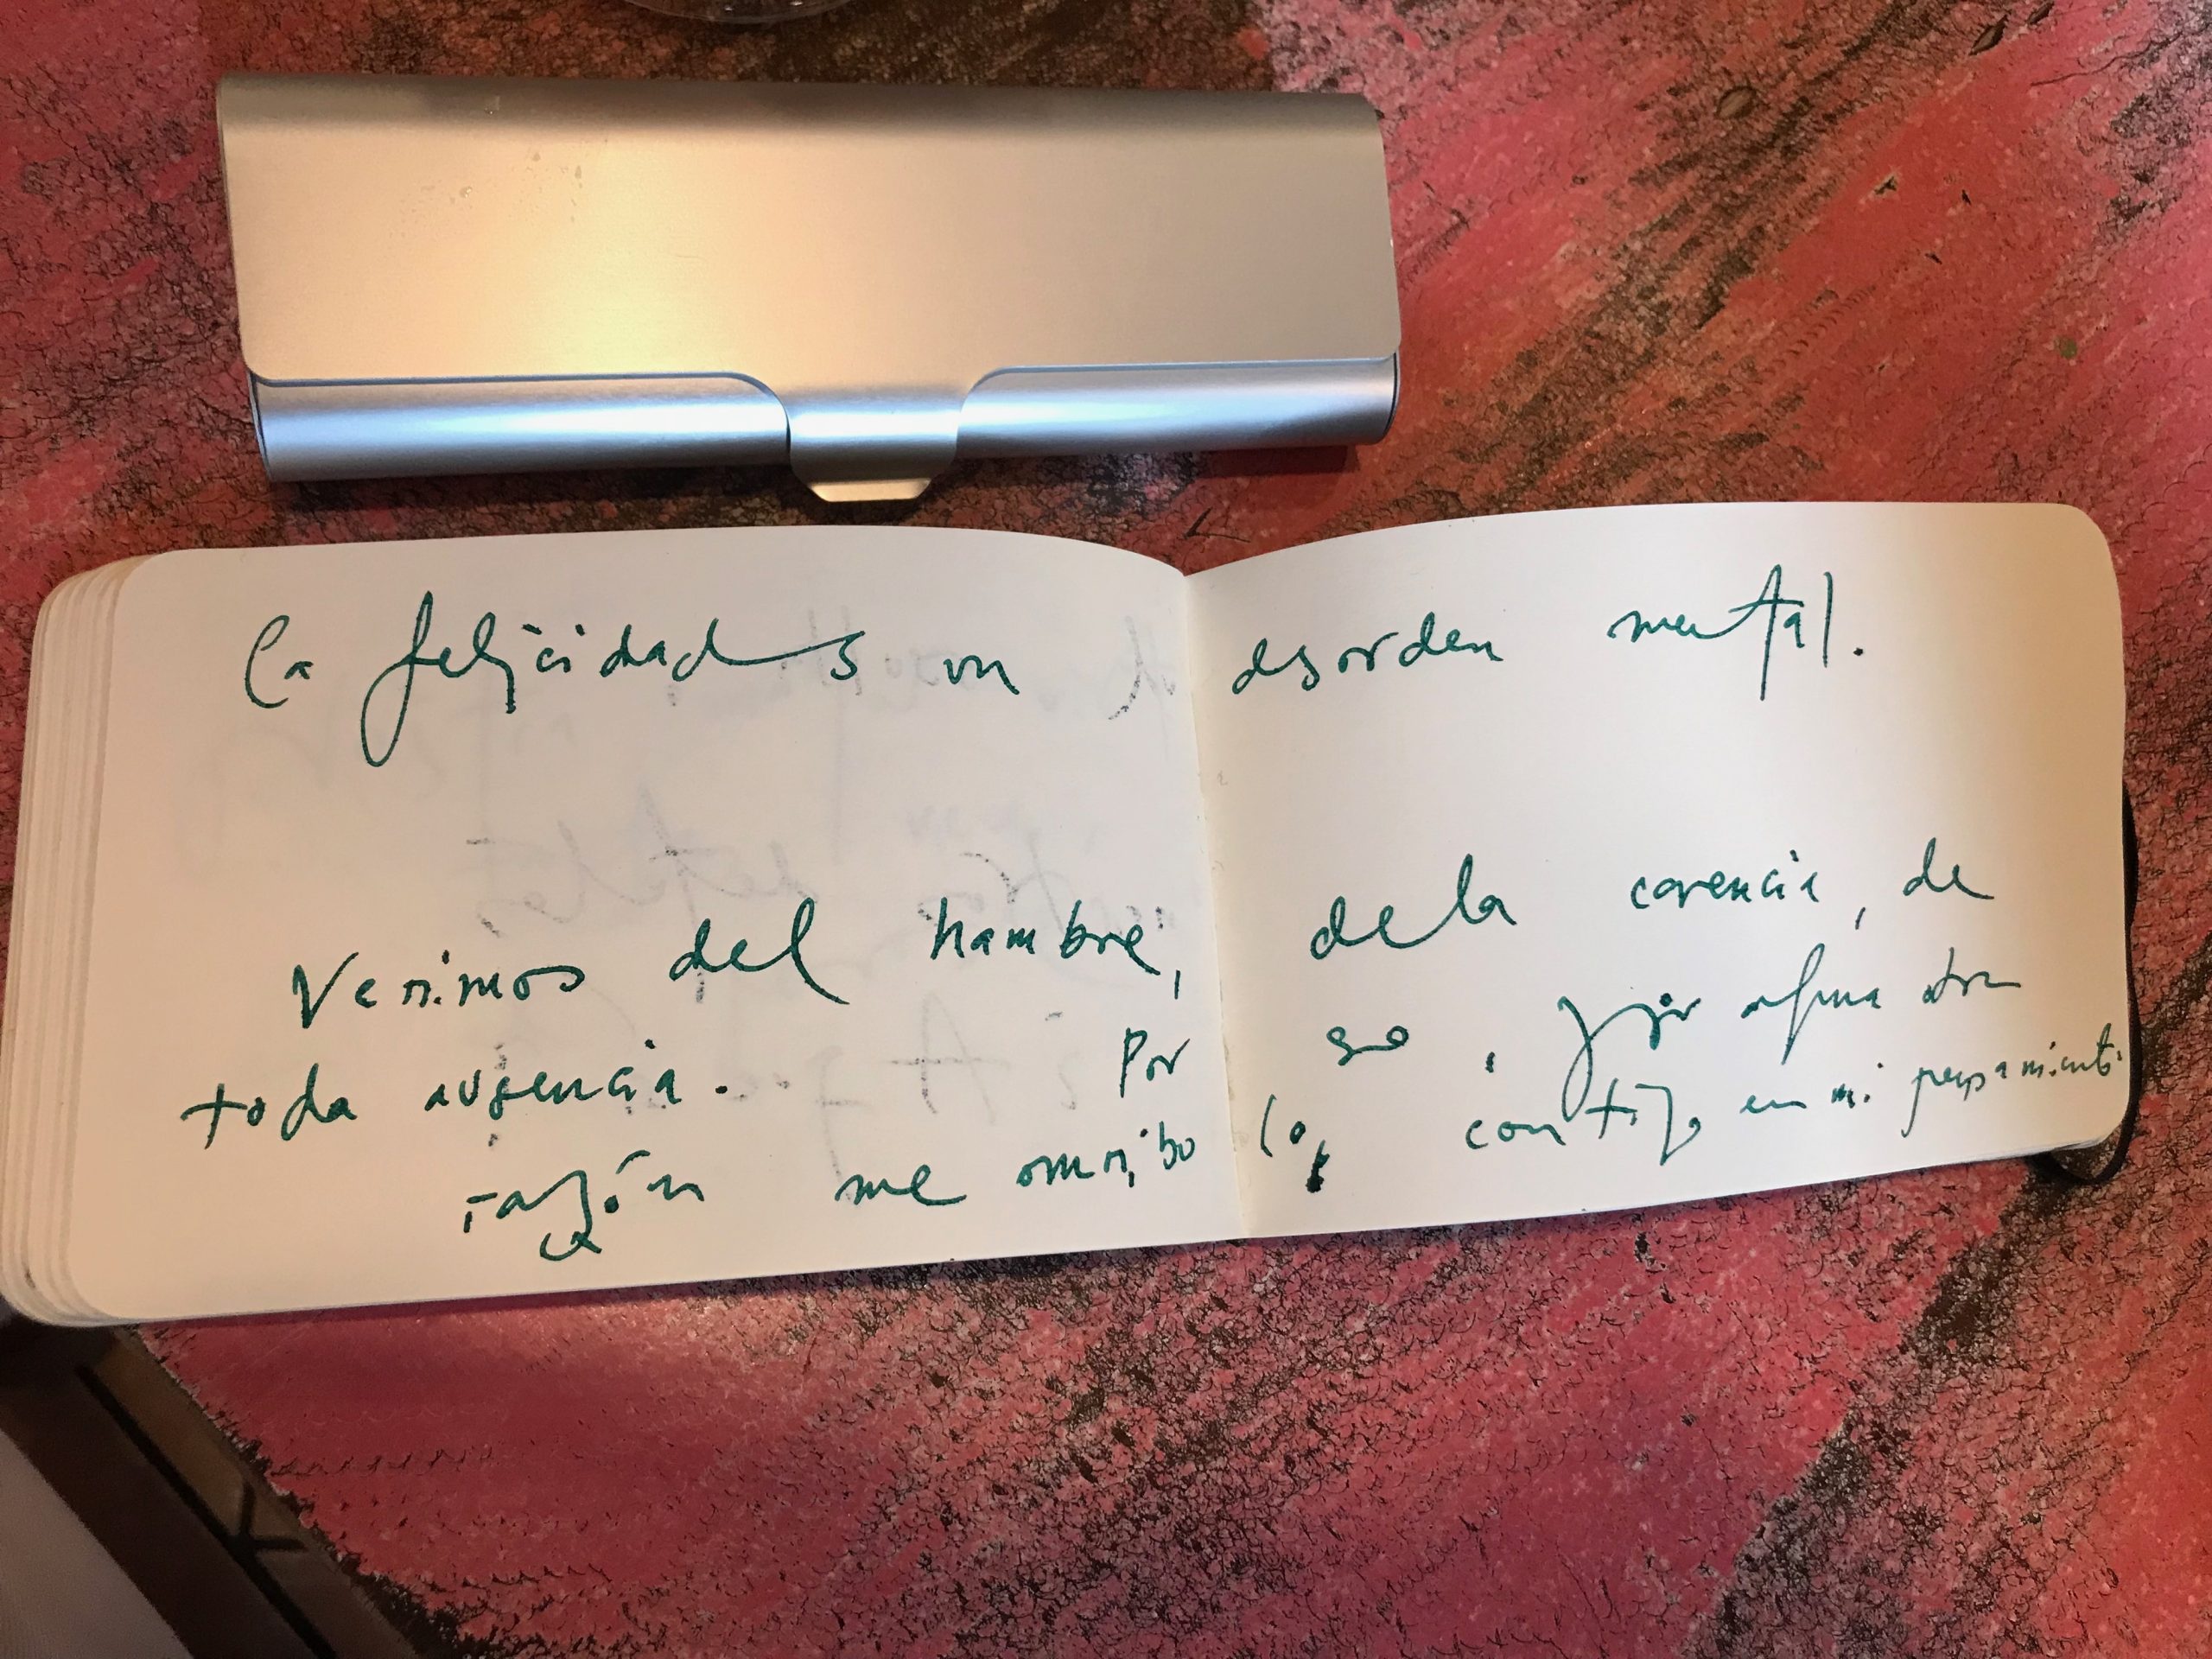 La felicidad es un desorden mental.
Venimos del hambre, de la carencia, de
toda ausencia. Por eso, y por alguna otra
razón me conmribo contigo en mi pensamiento